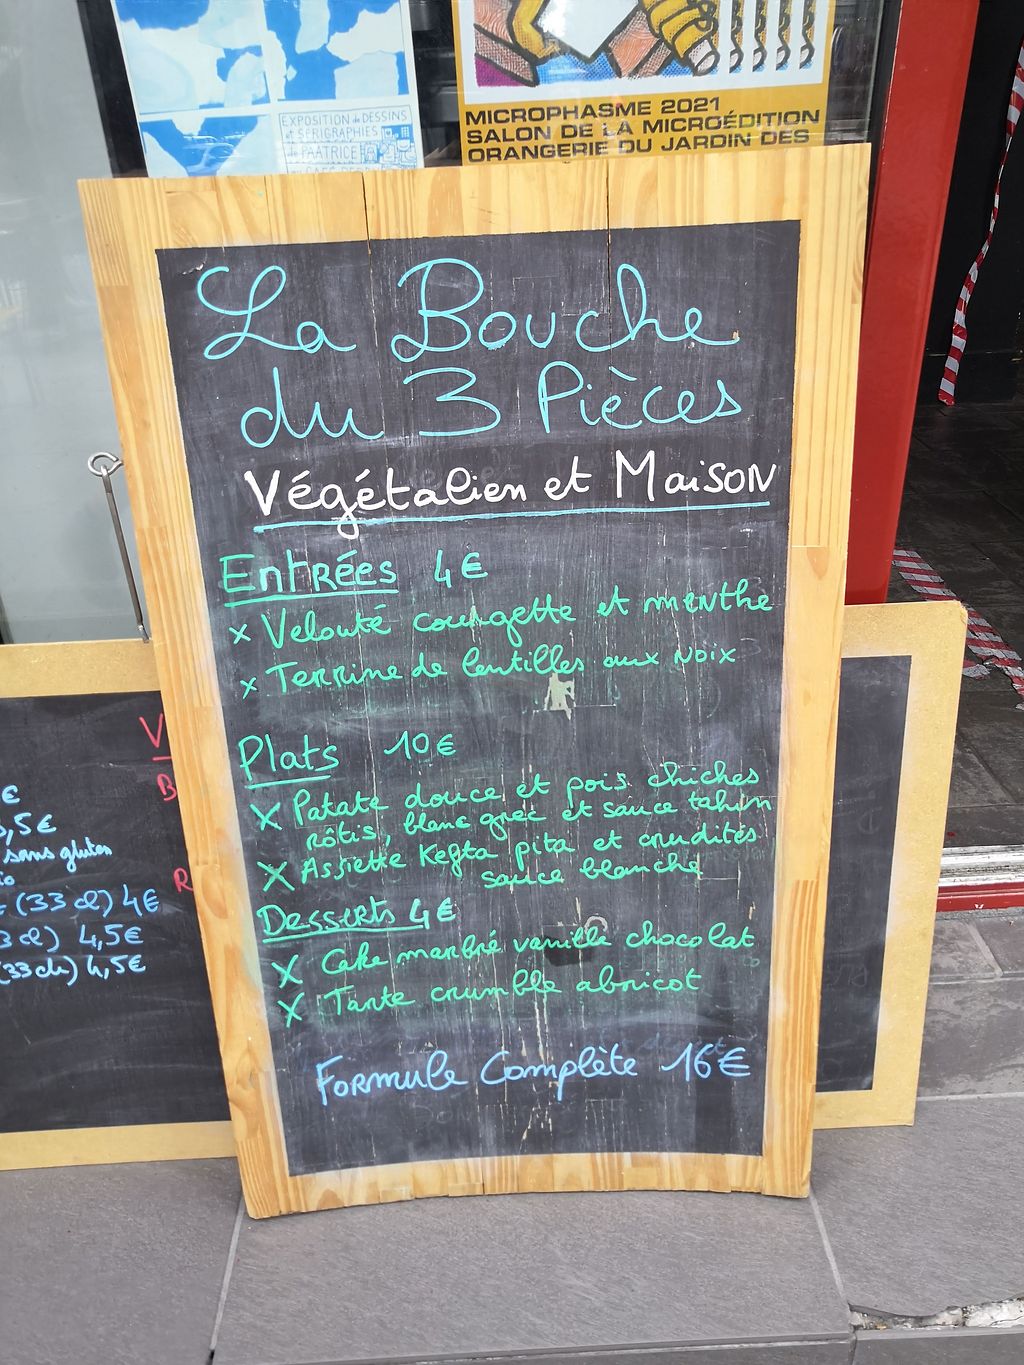 EXPOSITION de DESSINS
et SÉRIGRAPHIES
de PAATRICE
MICROPHASME 2021
SALON DE LA MICROÉDITION
ORANGERIE DU JARDIN DES
La Bouche
du 3 Pièces
Végétalien et Maison
Entrées 4€
x Velouté courgette et menthe
x Terrine de lentilles aux noix
Plats 10€
x Patate douce et pois chiches
rôtis, blanc grec et sauce tahin
x Assiette Kefta pita et crudités
sauce blanche
Desserts 4€
x Cake marbré vanille chocolat
x Tarte crumble abricot
Formule Complète 16€
V
B
€
,5€
sans gluten
R
(33 cl) 4€
cl) 4,5€
(33 cl) 4,5€